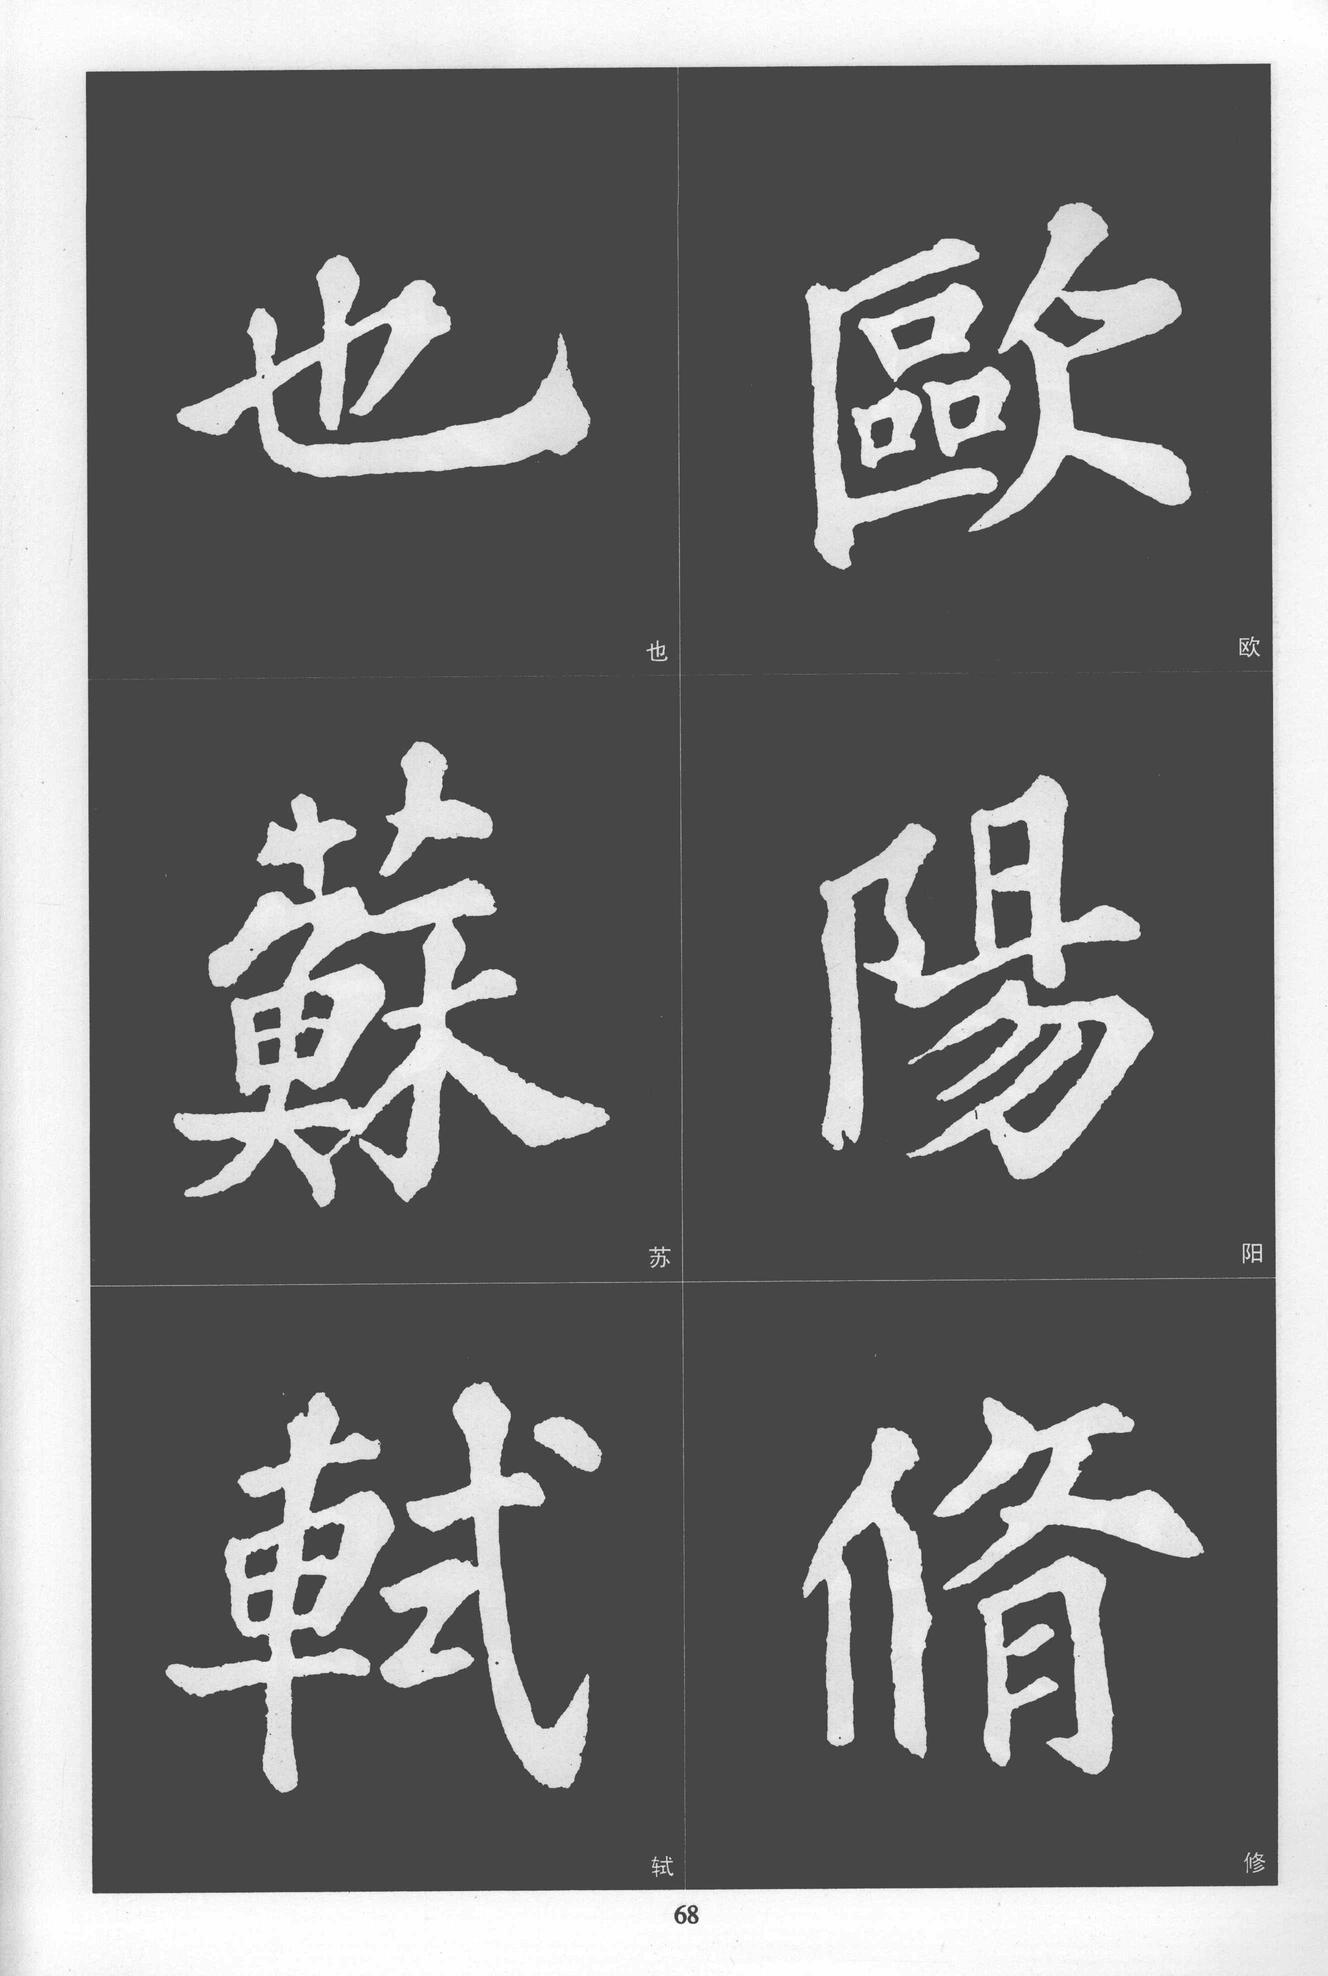 歐 欧
陽 阳
脩 修
也 也
蘇 苏
軾 轼
68